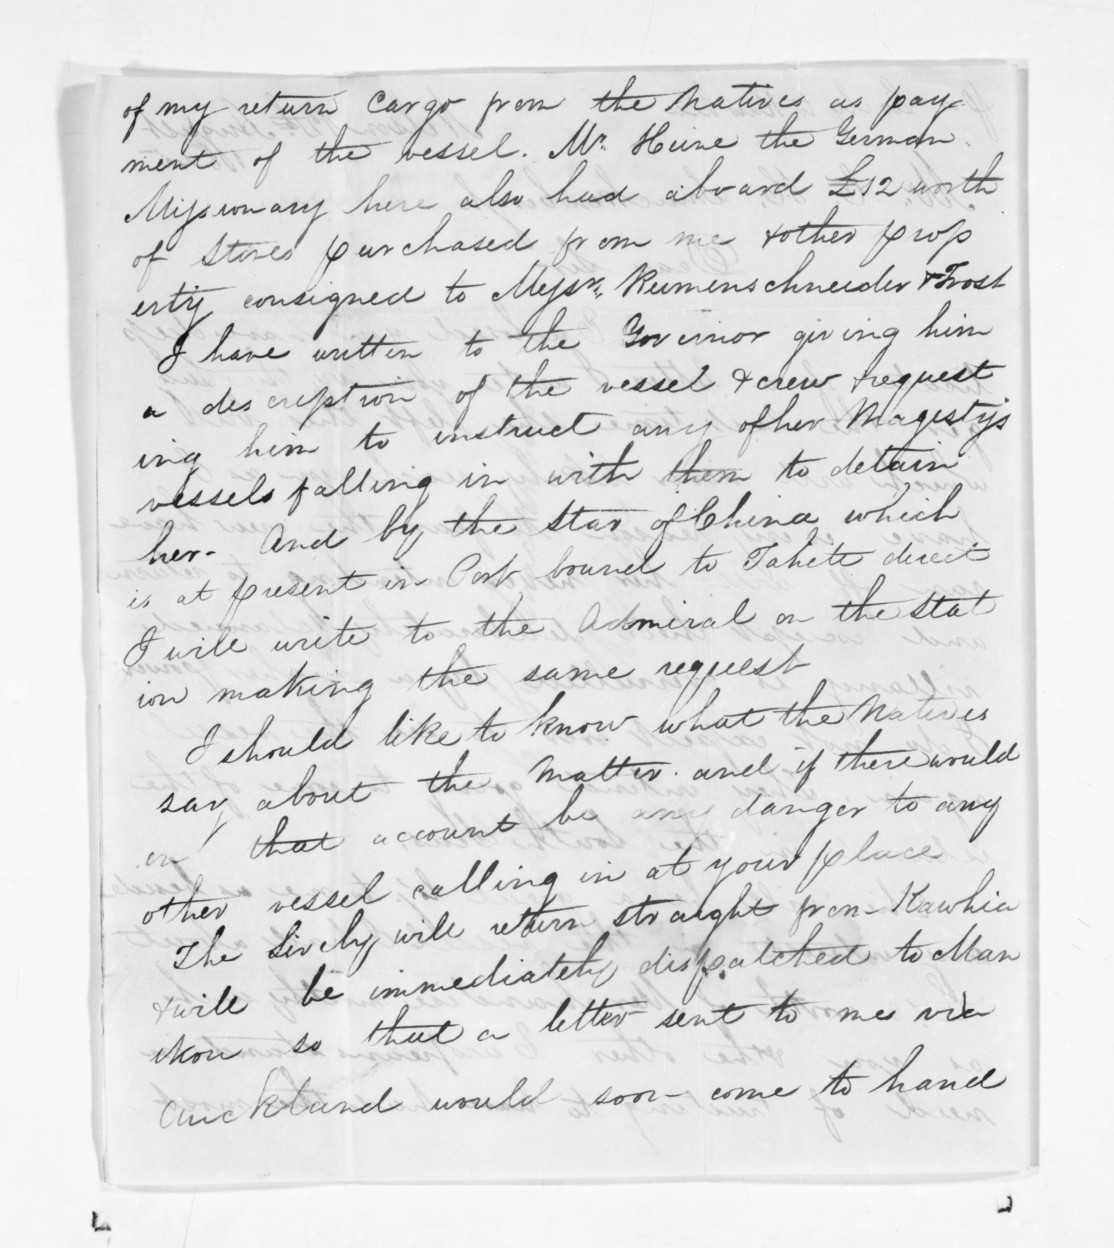 of my return Cargo from the Natives as pay
ment of the vessel. Mr. Heine the German
Missionary here also had aboard £12 worth
of Stores purchased from me & other prop
erty consigned to Messrs. Riemenschneider & Trost
I have written to the Governor giving him
a description of the vessel & crew & request
ing him to instruct any of her Magisty's
vessels falling in with them to detain
her - And by the Star of China which
is at present in Port bound to Taheti direct
I will write to the Admiral on the Stat
ion making the same request
I should like to know what the Natives
say about the Matter. and if there would
on that account be any danger to any
other vessel calling in at your place
The Lively will return straight from Kawhia
& will be immediately dispatched to Man
ikou so that a letter sent to me via
Auckland would soon come to hand